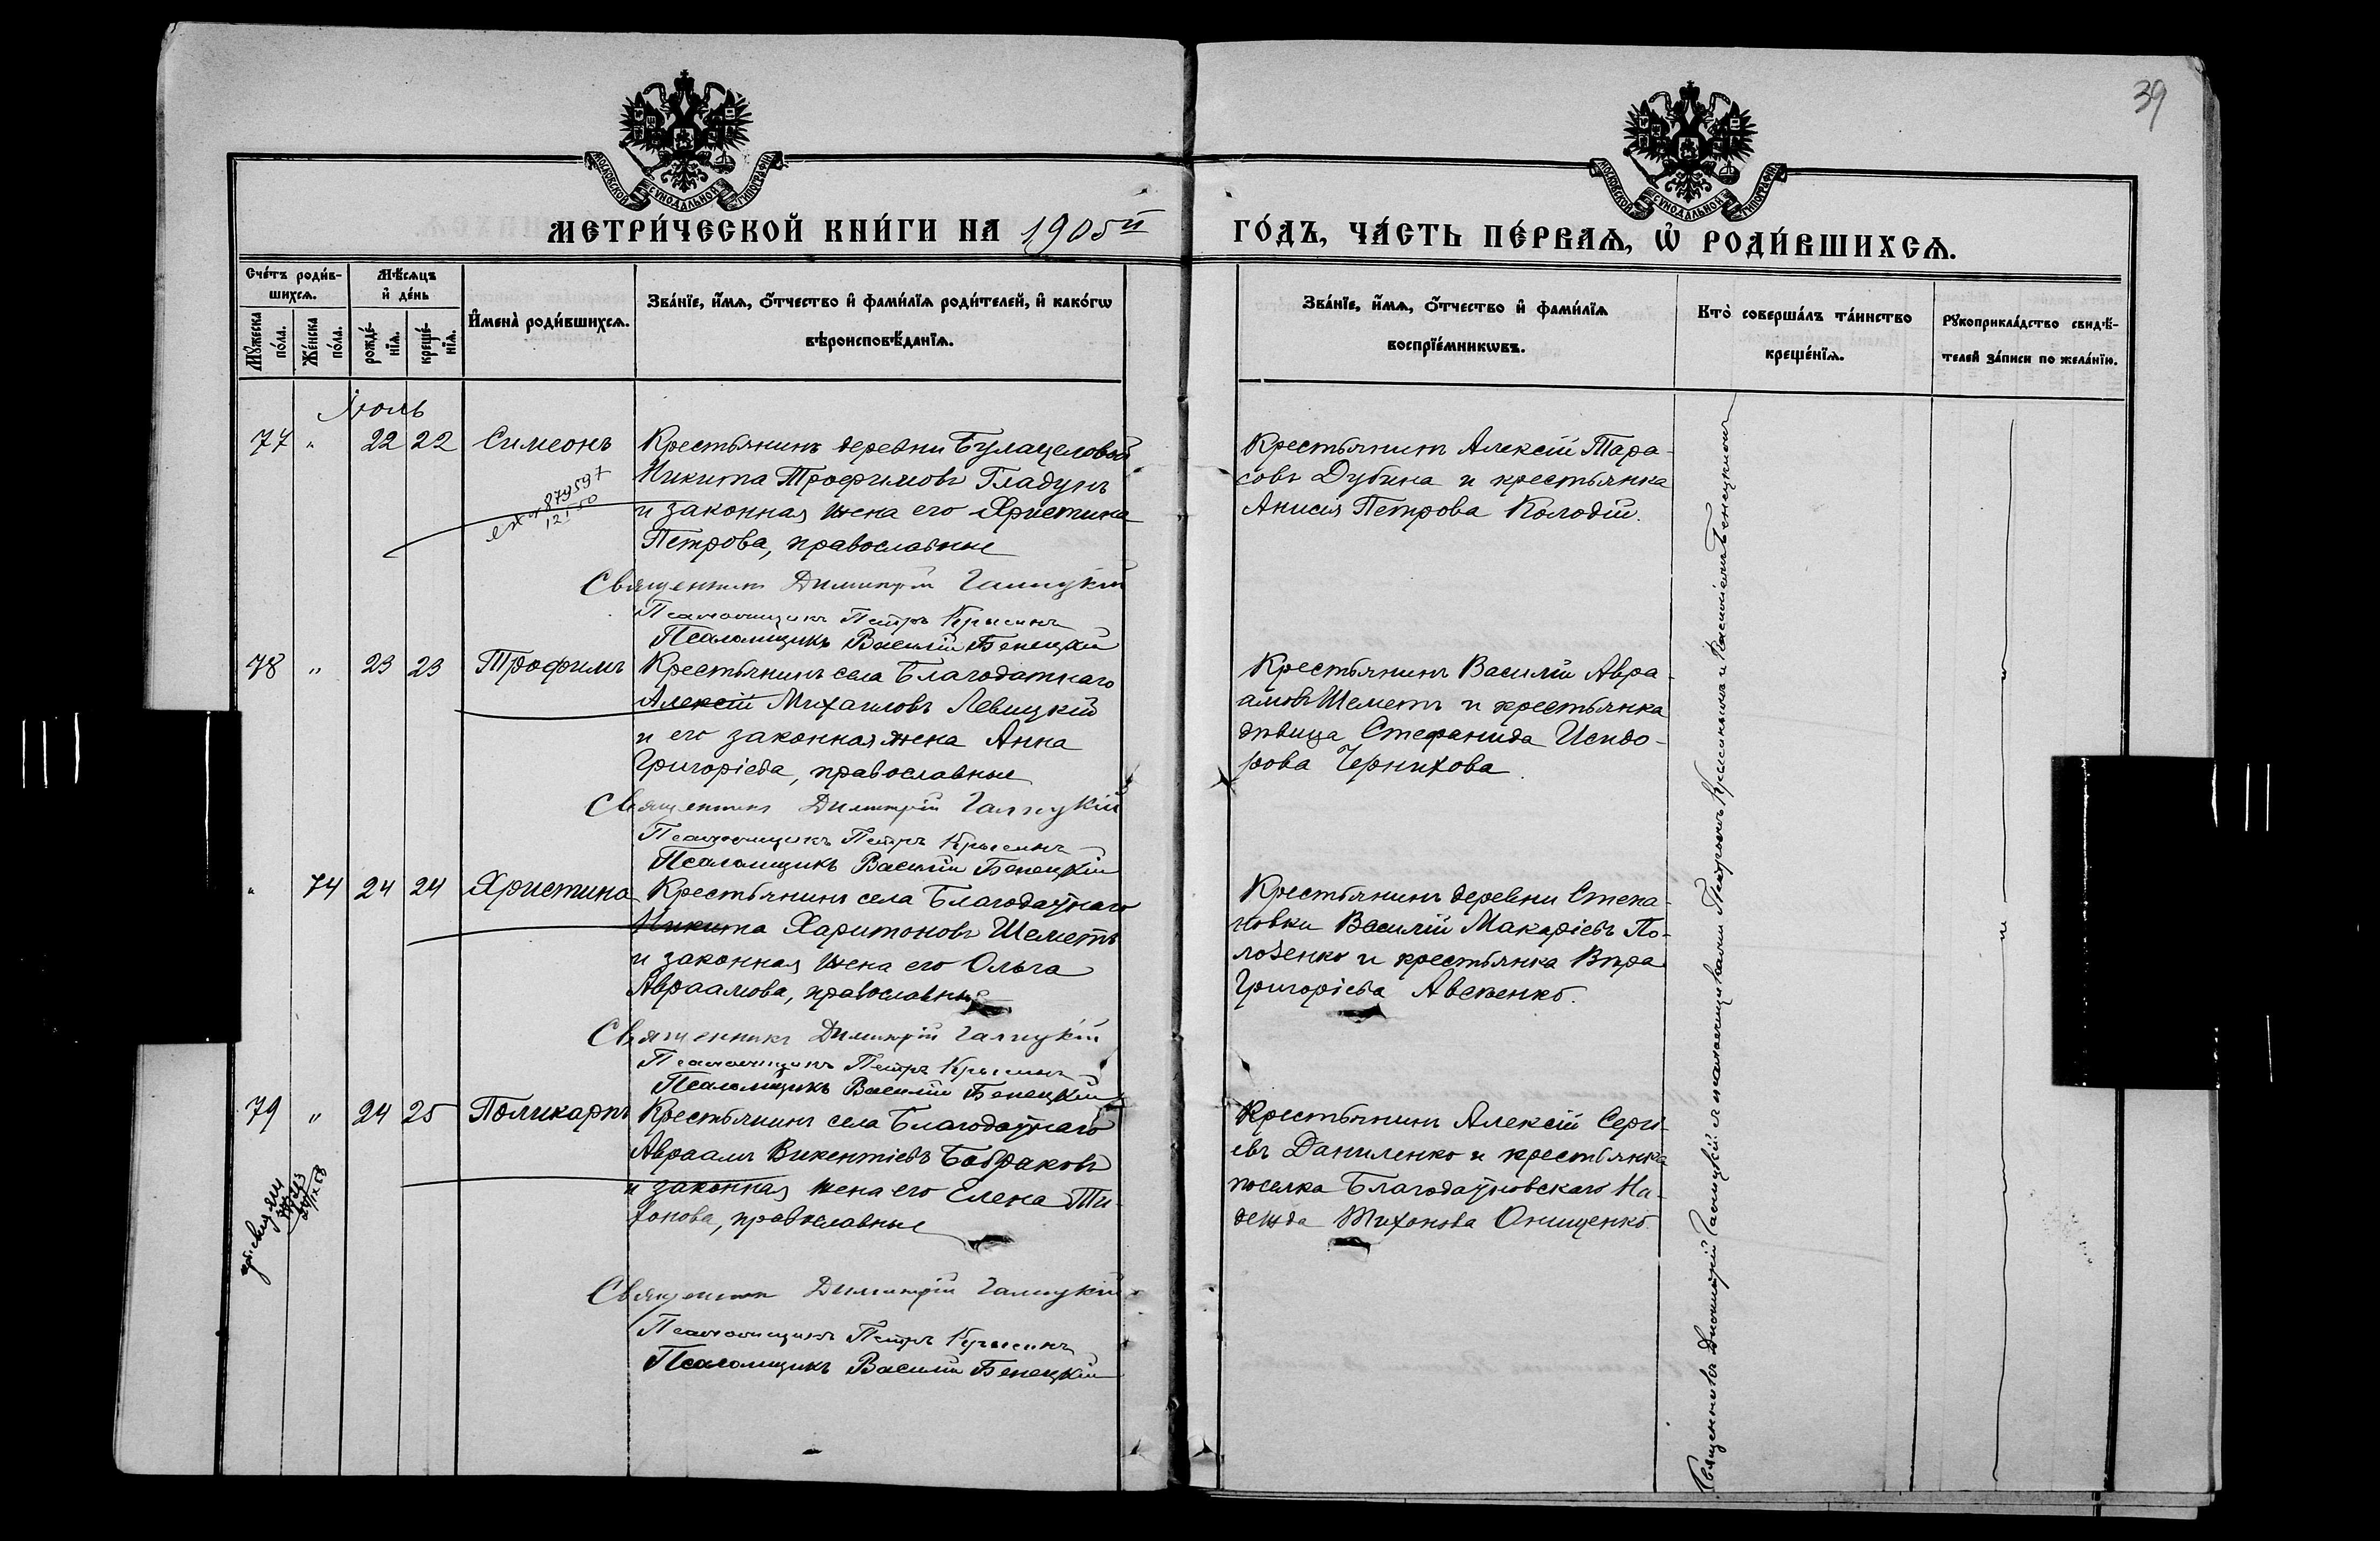 39
МОСКОВСКОЙ СУНОДАЛЬНОЙ ТИПОГРАФІИ
МОСКОВСКОЙ СУНОДАЛЬНОЙ ТИПОГРАФІИ
МЕТРИ́ЧЕСКОЙ КНИ́ГИ НА 1905й ГО́ДЪ, ЧА́СТЬ ПЕ́РВАѦ, Ѡ҆ РОДИ́ВШИХСѦ.
Сче́тъ роди́в-
шихсѧ.
Мѹ́жеска по́ла.
Же́нска по́ла.
Мѣ́сѧцъ
и҆ де́нь
рожде́-
нїѧ.
креще́-
нїѧ.
И҆мена̀ роди́вшихсѧ.
Зва́нїе, и҆́мѧ, ѻ҆́тчество и҆ фами́лїѧ роди́телей, и҆ како́гѡ
вѣроисповѣ́данїѧ.
Зва́нїе, и҆́мѧ, ѻ҆́тчество и҆ фами́лїѧ
воспрїе́мникѡвъ.
Кто̀ соверша́лъ та́инство
креще́нїѧ.
Рꙋкоприкла́дство свидѣ́-
телей за́писи по жела́нїю.
Іюль
77 " 22 22 Симеонъ
Крестьянинъ деревни Булацеловой
Никита Трофимовъ Гладунъ
и законная жена его Христина
Петрова, православные
Священникъ Димитрій Галицкій
Псаломщикъ Петръ Крысинъ
Псаломщикъ Василій Бенецкій
879597
12 I 50
Крестьянинъ Алексій Тара-
совъ Дубина и крестьянка
Анисія Петрова Колодій.
78 " 23 23 Трофимъ
Крестьянинъ села Благодатнаго
Алексій Михаиловъ Левицкій
и его законная жена Анна
Григоріева, православные
Священникъ Димитрій Галицкій
Псаломщикъ Петръ Крысинъ
Псаломщикъ Василій Бенецкій
Крестьянинъ Василій Авра-
амовъ Шеметъ и крестьянка
дѣвица Стефанида Исидо-
рова Чернихова.
" 74 24 24 Христина
Крестьянинъ села Благодатнаго
Никита Харитоновъ Шеметъ
и законная жена его Ольга
Авраамова, православные
Священникъ Димитрій Галицкій
Псаломщикъ Петръ Крысинъ
Псаломщикъ Василій Бенецкій
Крестьянинъ деревни Степа-
новки Василій Макаріевъ По-
лозенко и крестьянка Вѣра
Григоріева Авсѣенко.
79 " 24 25 Поликарпъ
Крестьянинъ села Благодатнаго
Авраамъ Викентіевъ Бобраковъ
и законная жена его Елена Ти-
хонова, православные
Священникъ Димитрій Галицкій
Псаломщикъ Петръ Крысинъ
Псаломщикъ Василій Бенецкій
Крестьянинъ Алексій Сергі-
евъ Даниленко и крестьянка
поселка Благодатновскаго На-
дежда Тихонова Онищенко.
Священникъ Димитрій Галицкій съ псаломщиками Петромъ Крысинымъ и Василіемъ Бенецкимъ